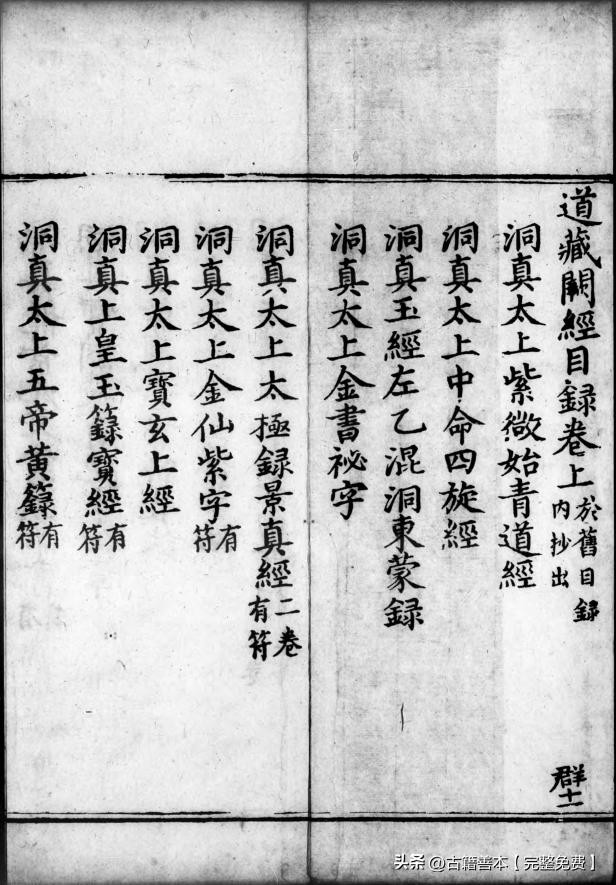 道藏闕經目録卷上於舊目録内抄出
群十一
洞真太上紫微始青道經
洞真太上中命四旋經
洞真玉經左乙混洞東蒙録
洞真太上金書祕字
洞真太上太極録景真經二卷有符
洞真太上金仙紫字有符
洞真太上寶玄上經
洞真上皇玉籙寶經有符
洞真太上五帝黄籙有符
头条@古籍善本【完整免费】